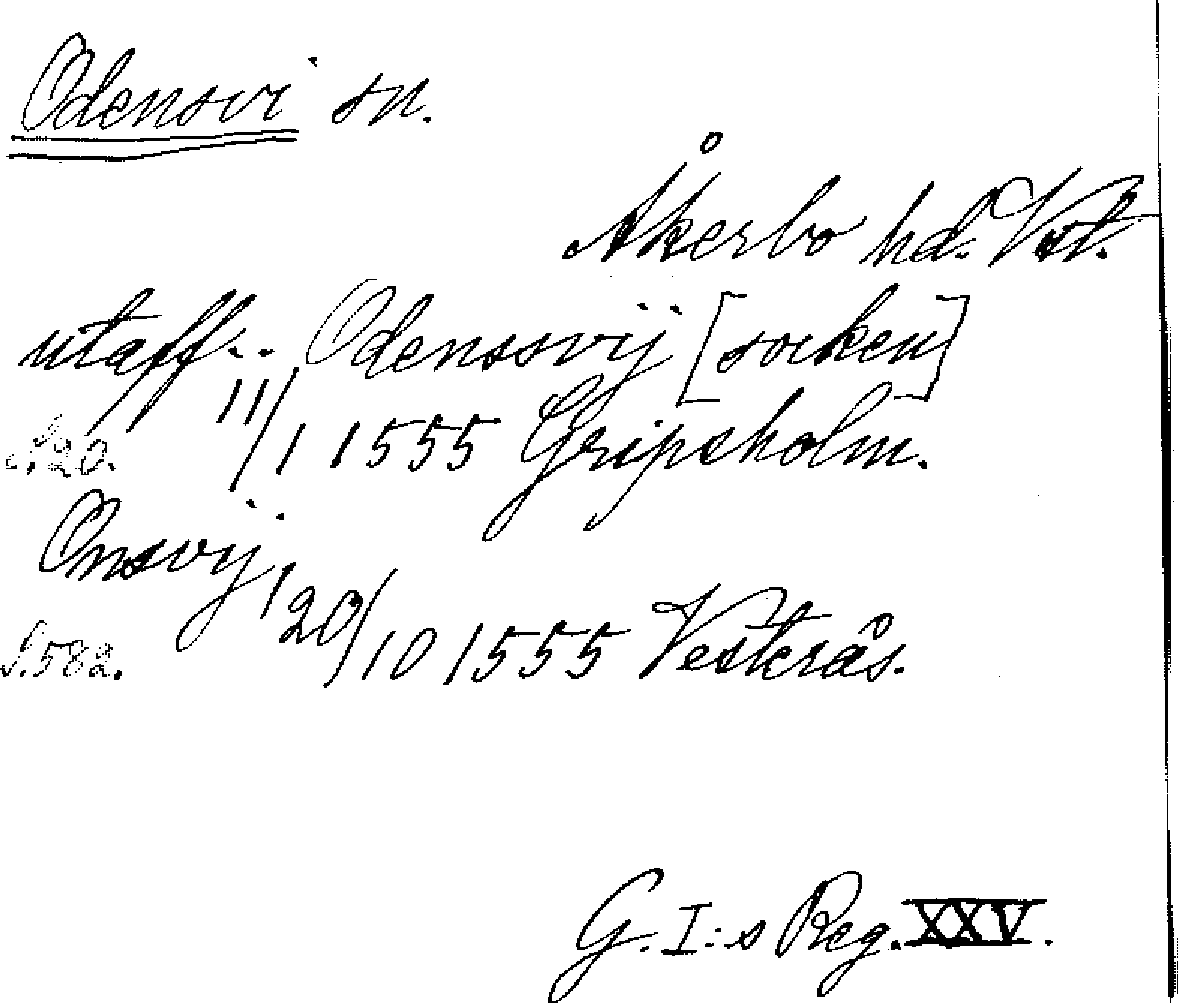 Odensvi sn.
Åkerbo hd. Vstl.
utaff.. Odenssvij [socken]
S. 20. 11/1 1555 Gripsholm.
Onsvij,
S. 582. 20/10 1555 Vesterås.
G. I:s Reg. XXV.